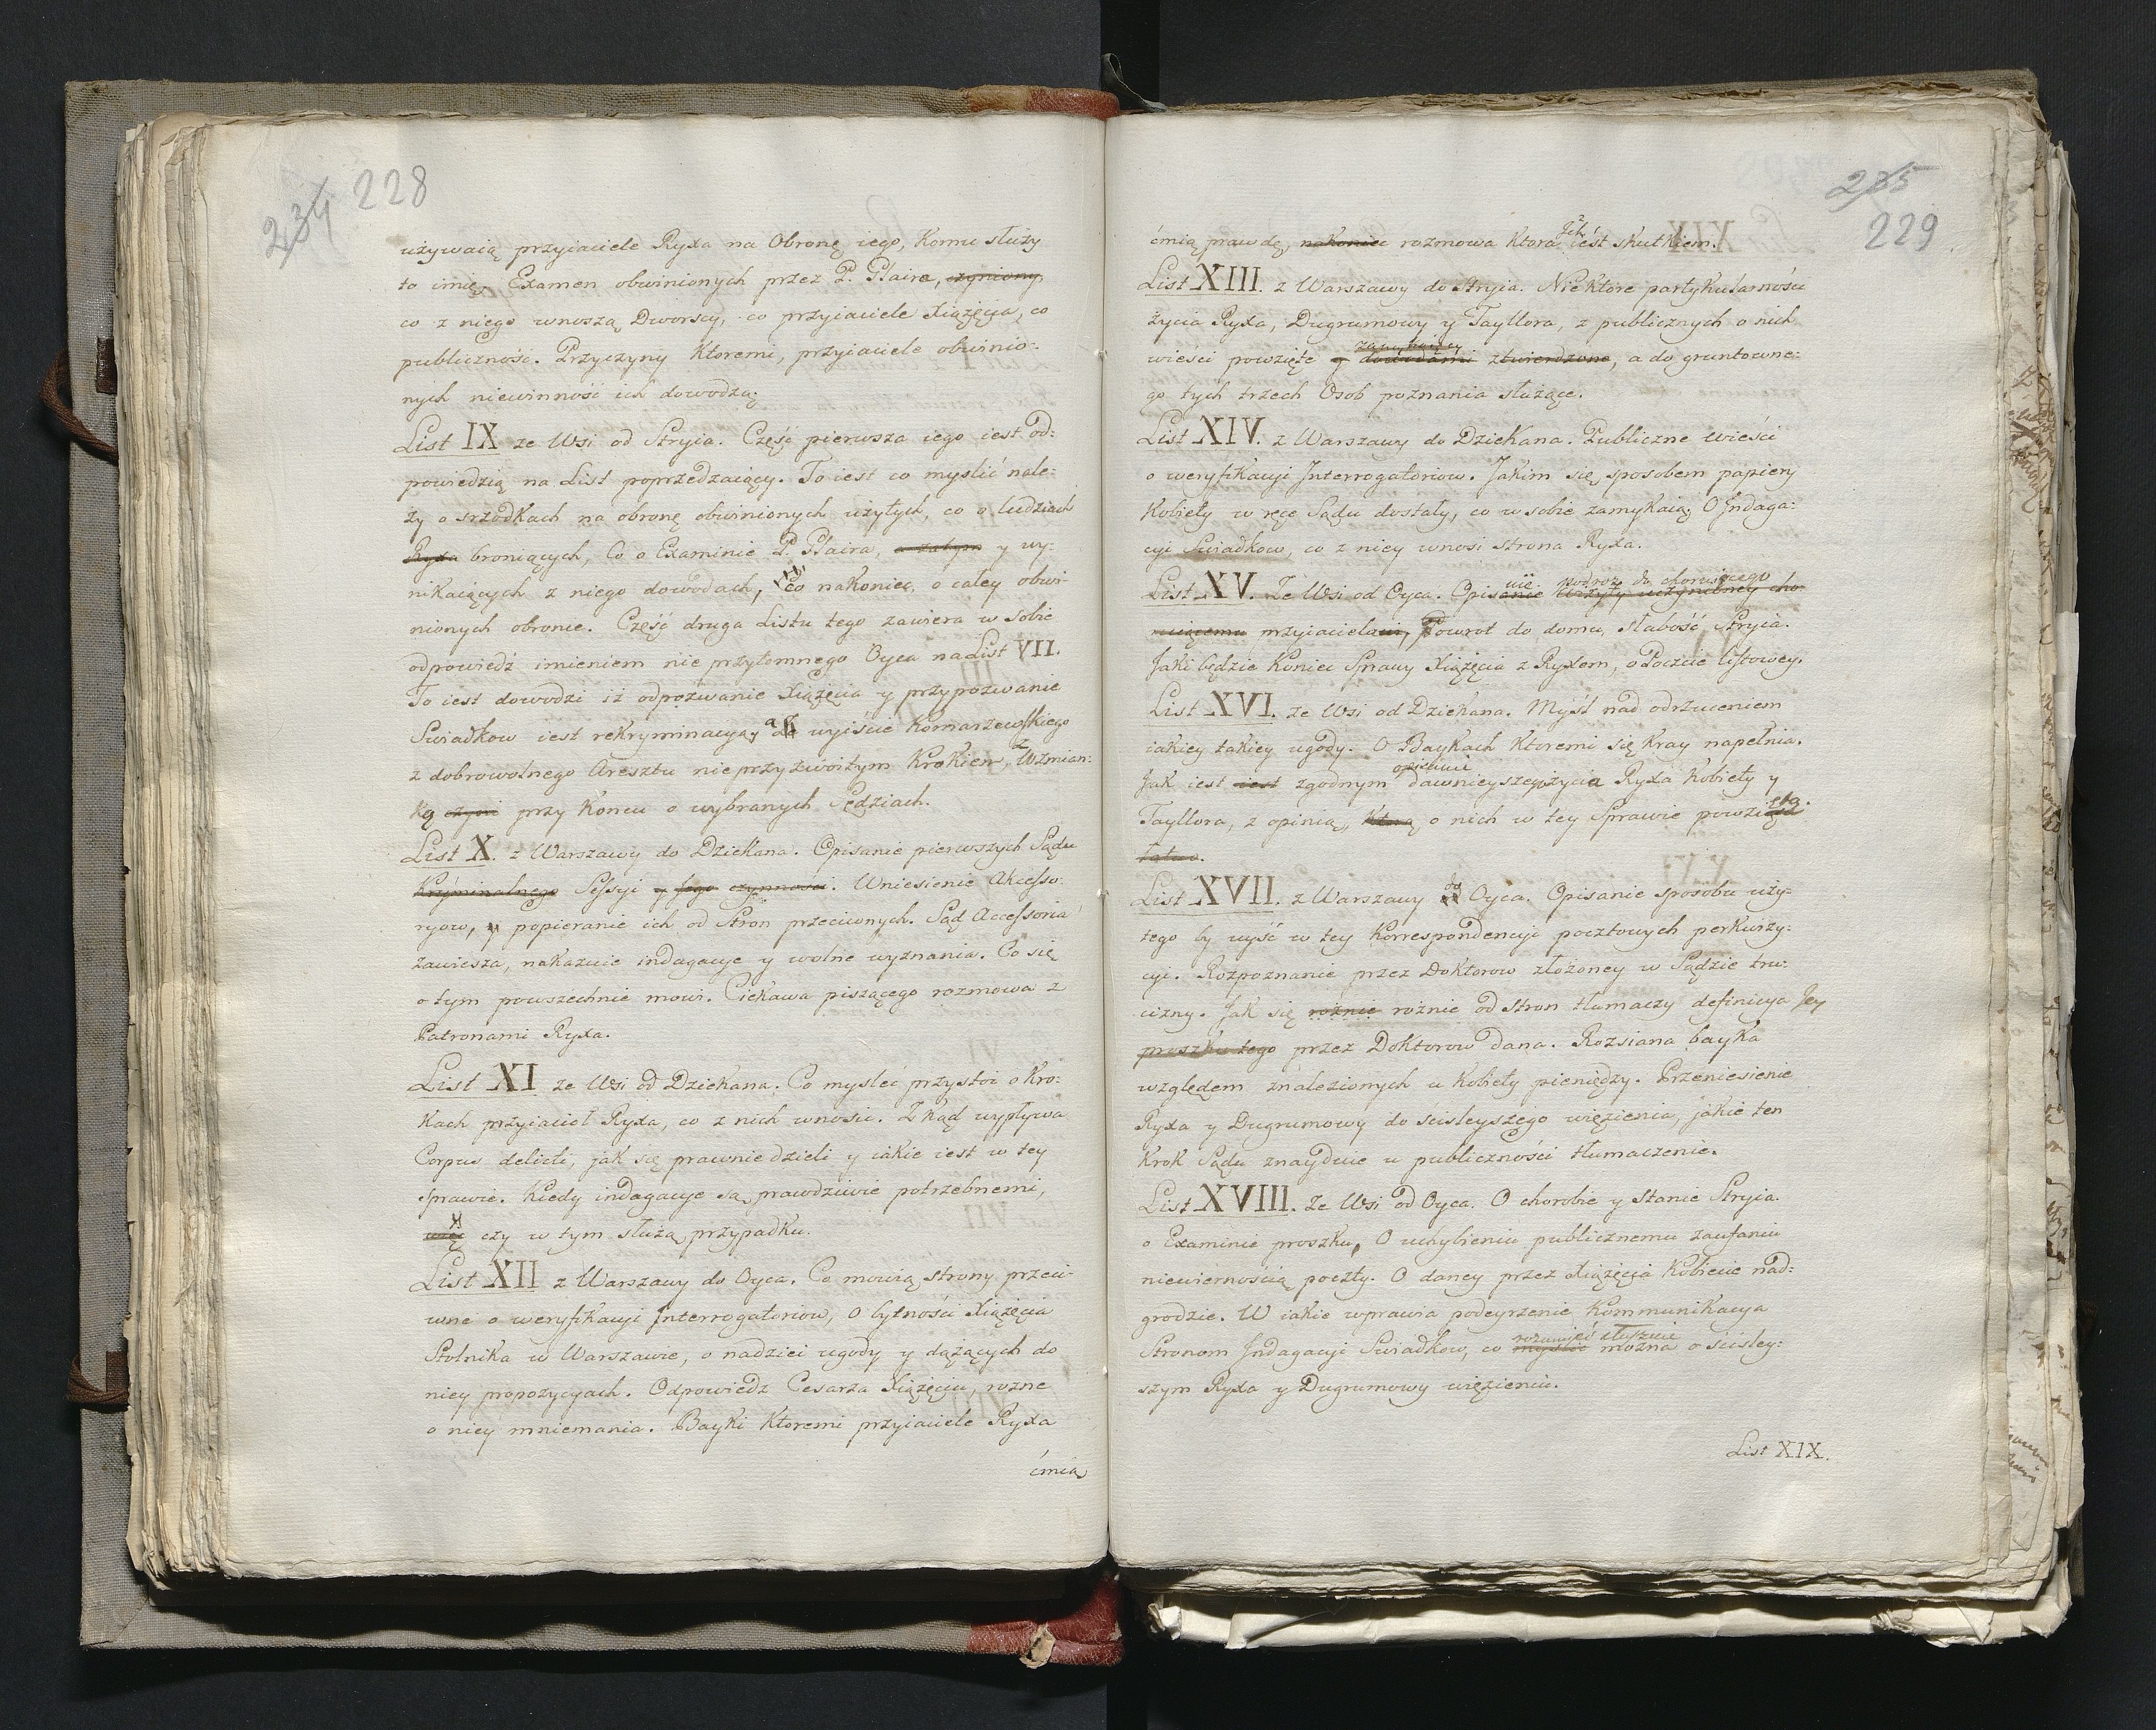 234 228
używaią przyiaciele Ryxa na Obronę iego, Komu służy
to imię. Examen obwinionych przez P. Plaire, czyniony,
co z niego wnoszą Dworscy, co przyiaciele Xiążęcia, co
publiczność. Przyczyny Ktoremi, przyiaciele obwinio:
nych niewinność ich dowodzą.
List IX ze Wsi od Stryia. Część pierwsza iego iest od:
powiedzią na List poprzedzaiący. To iest co myslić nale:
ży o srzodkach na obronę obwinionych użytych, co o ludziach
Ryxa broniących, Co o Examinie P. Plaira, a zatym y wy:
nikaiących z niego dowodach, co nakoniec, o całey obwi-
nionych obronie. Część druga Listu tego zawiera w sobie
odpowiedź imieniem nie przytomnego Oyca na List VII.
To iest dowodzi iż odpozwanie Xiążęcia y przypozwanie
Swiadkow iest rekryminacyą, a wyiście Komarzewskiego
z dobrowolnego Aresztu nieprzyzwoitym Krokiem, z Wzmian:
ką czyni przy Koncu o wybranych Sędziach.
List X. z Warszawy do Dziekana. Opisanie pierwszych Sądu
Kryminalnego Sessyi y Jego czynności. Wniesienie Akcesso:
ryow, y popieranie ich od Stron przeciwnych. Sąd Accessoria
zawiesza, nakazuie indagacye y wolne wyznania. Co się
o tym powszechnie mowi. Ciekawa piszącego rozmowa z
Patronami Ryxa.
List XI ze Wsi od Dziekana. Co mysleć przystoi o Kro:
kach przyiacioł Ryxa, co z nich wnosić. Zkąd wypływa
Corpus delicti, jak się prawnie dzieli y iakie iest w tey
sprawie. Kiedy indagacye są prawdziwie potrzebnemi,
y
czy w tym służą przypadku.
List XII z Warszawy do Oyca. Co mowią strony przeci-
wne o weryfikacyi Interrogatoriow, o bytności Xiążęcia
Stolnika w Warszawie, o nadziei ugody y dążących do
niey propozycyach. Odpowiedź Cesarza Xiążęciu, rozne
o niey mniemania. Bayki Ktoremi przyiaciele Ryxa
ćmią
235
229
ćmią prawdę, nakoniec rozmowa Ktora Jch iest skutkiem.
List XIII. z Warszawy do Stryia. Niektore partykularności
życia Ryxa, Dugrumowy y Tayllora, z publicznych o nich
wieści powzięte y dowodami ztwierdzone, a do gruntowne:
go tych trzech Osob poznania służące.
List XIV. z Warszawy do Dziekana. Publiczne wieści
o weryfikacyi Interrogatoriow. Jakim się sposobem papiery
Kobiety w ręce Sądu dostały, co w sobie zamykaią, O Jndaga:
cyi Swiadkow, co z niey wnosi strona Ryxa.
nie podroży do choruiącego
List XV. Ze Wsi od Oyca. Opisanie Wizyty uczynioney cho-
ruiącemu przyiacielowi, Powrot do domu, słabość Stryia.
Jaki będzie Koniec Sprawy Xiążęcia z Ryxem, o Poczcie listowey.
List XVI. ze Wsi od Dziekana. Myśl nad odrzuceniem
iakiey takiey ugody. O Baykach Ktoremi się Kray napełnia.
opisanie
Jak iest iest zgodnym dawnieyszego życia Ryxa Kobiety y
Tayllora, z opinią, Ktorą o nich w tey Sprawie powzięta
List XVII. z Warszawy do Oyca. Opisanie sposobu uży:
tego by uyść w tey Korrespondencyi pocztowych perkwizy:
cyi. Rozpoznanie przez Doktorow złożoney w Sądzie tru:
cizny. Jak się rożnie rożnie od stron tłumaczy definicya Jey
proszku tego przez Doktorow dana. Rozsiana bayka
względem znalezionych u Kobiety pieniędzy. Przeniesienie
Ryxa y Dugrumowy do ściśleyszego więzienia, jakie ten
Krok Sądu znayduie u publiczności tłumaczenie.
List XVIII. Ze Wsi od Oyca. O chorobie y stanie Stryia.
o Examinie proszku, O uchybieniu publicznemu zaufaniu
niewiernością poczty. O daney przez Xiążęcia Kobiecie nad:
grodzie. W iakie wprawia podeyrzenie Kommunikacya
rozumieć słusznie
Stronom Jndagacyi Swiadkow, co myslić można o ściśley:
szym Ryxa y Dugrumowy więzieniu.
List XIX.